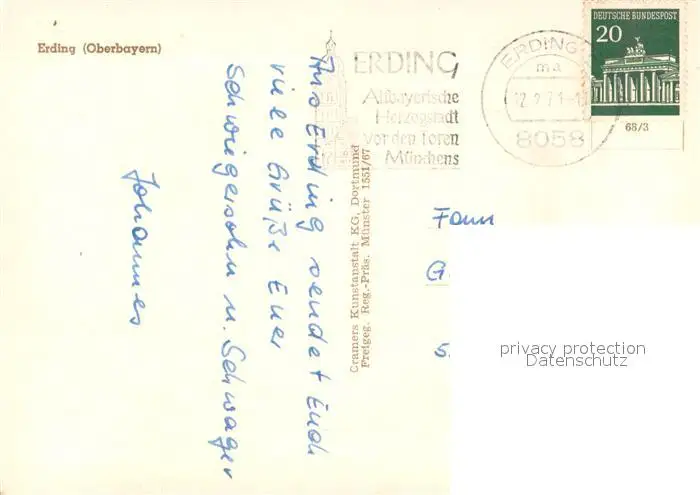 Erding (Oberbayern)
ERDING
Altbayerische
Herzogstadt
vor den Toren
Münchens
ERDING
ma
12.2.71-1
8058
DEUTSCHE BUNDESPOST
20
68/3
Aus Erding sendet Euch
viele Grüße Euer
Schwiegersohn u. Schwager
Johannes
Cramers Kunstanstalt KG, Dortmund
Freigeg. Reg.-Präs. Münster 1551/67
Fam
G
5
privacy protection
Datenschutz